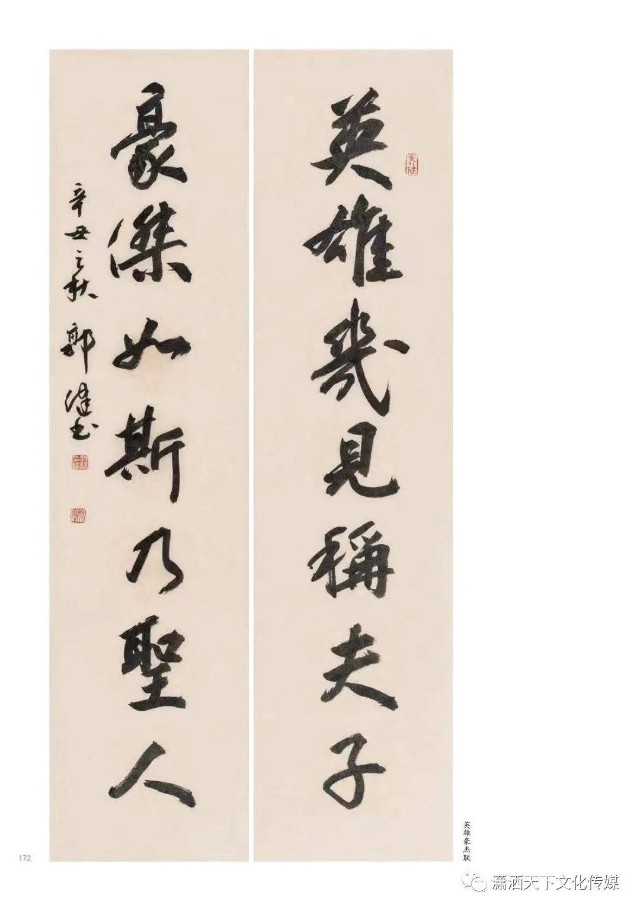 英雄幾見稱夫子
豪傑如斯乃聖人
辛丑之秋 郭健书
英雄豪杰联
172
潇洒天下文化传媒